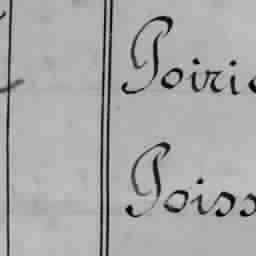 Poiri
Poiss